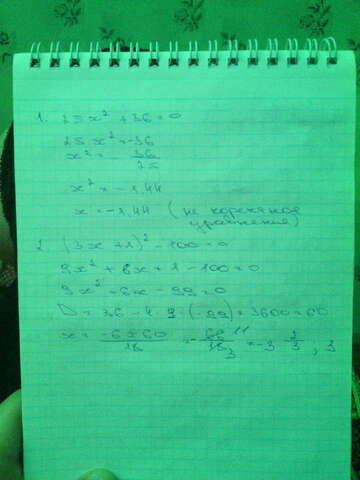 1. 25x² + 36 = 0
25x² = -36
x² = - 36/25
x² = -1,44
x = -1,44 (не
уравнения)
2 (3x + 1)² - 100 = 0
9x² + 6x + 1 - 100 = 0
9x² + 6x - 99 = 0
D = 36 - 4 · 9 · (-99) = 3600 = 60
x = -6 ± 60 / 18 = - 66 11 / 18 3 = -3 2/3 , 3